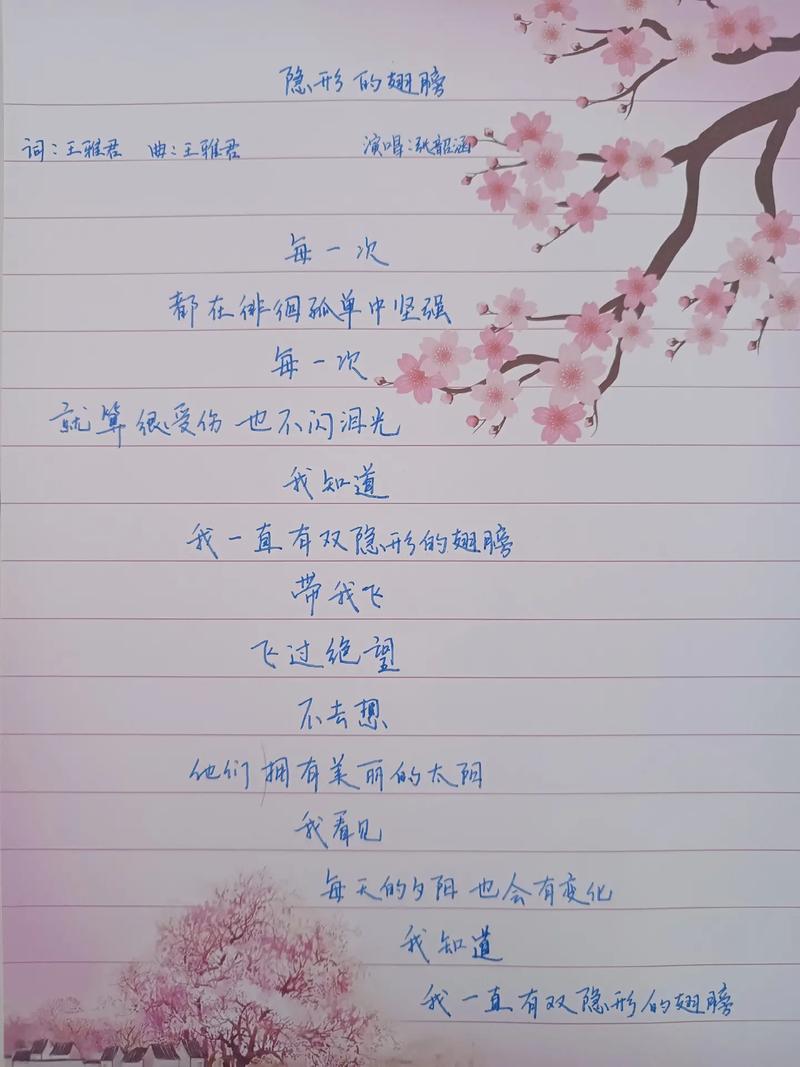 隐形的翅膀
词：王雅君 曲：王雅君 演唱：张韶涵
每一次
都在徘徊孤单中坚强
每一次
就算很受伤 也不闪泪光
我知道
我一直有双隐形的翅膀
带我飞
飞过绝望
不去想
他们拥有美丽的太阳
我看见
每天的夕阳 也会有变化
我知道
我一直有双隐形的翅膀